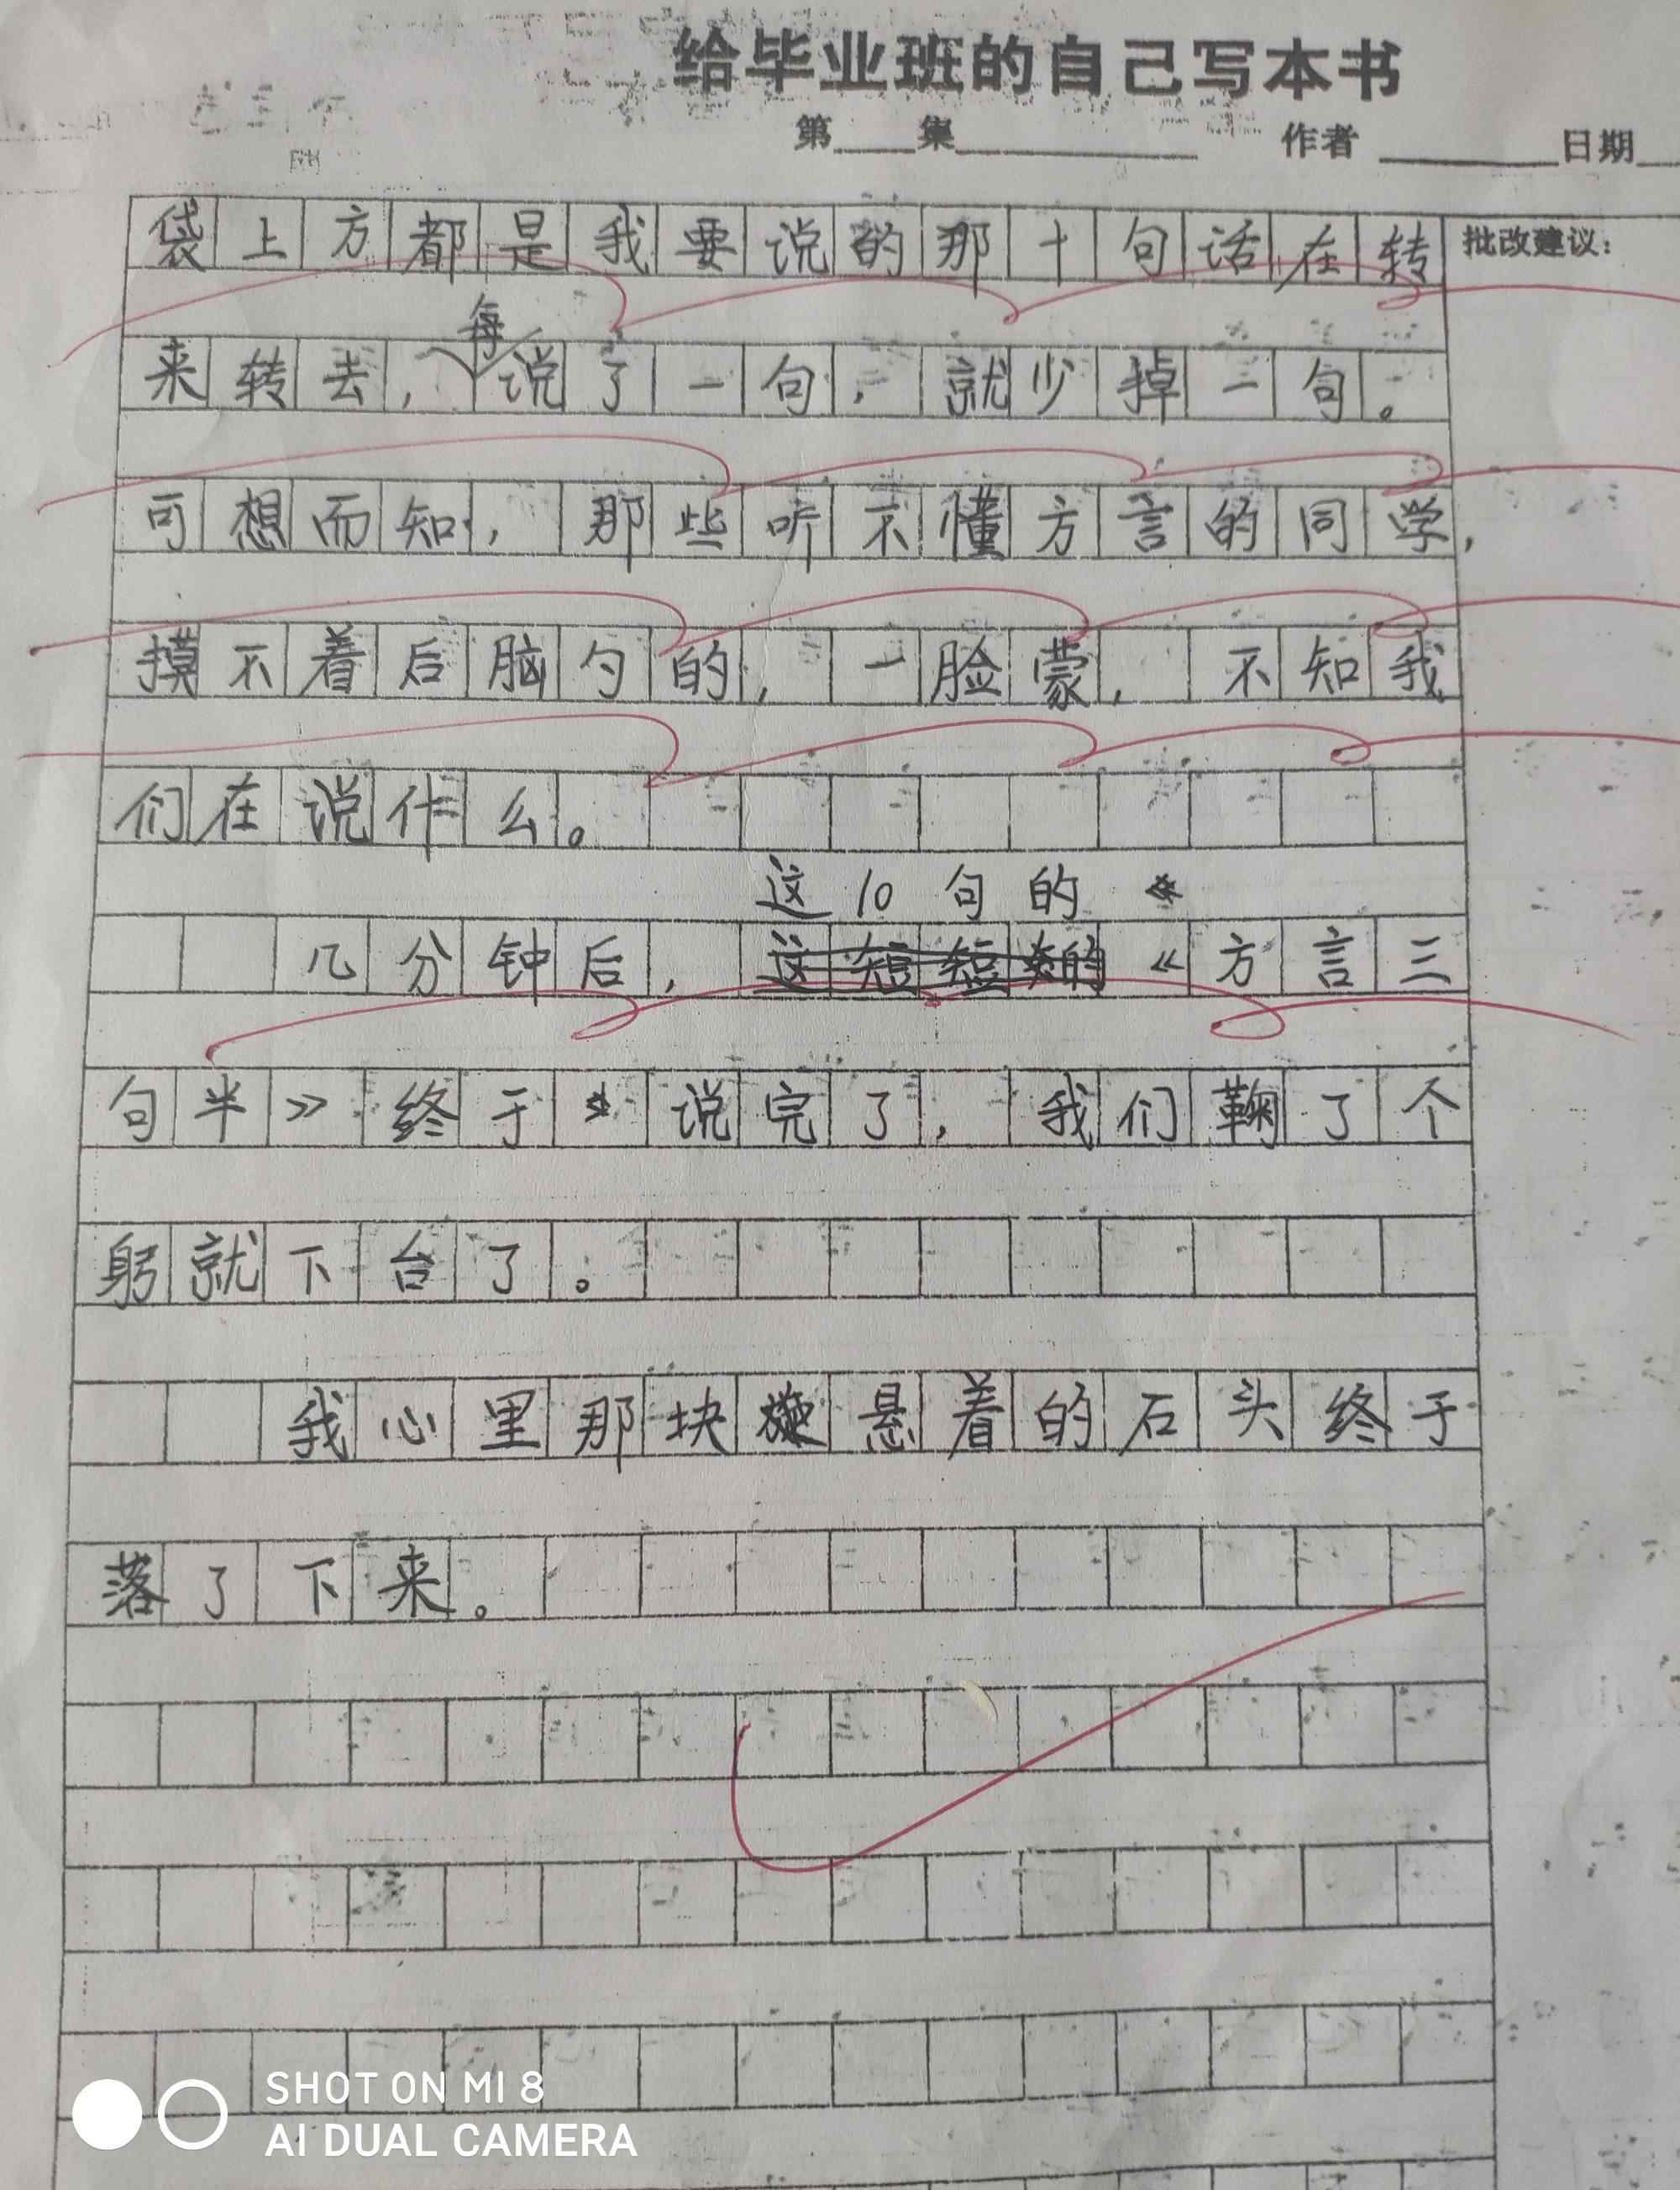 给毕业班的自己写本书
第 集 作者 日期
袋上方都是我要说的那十句话在转
批改建议：
每
来转去，说了一句，就少掉一句。
可想而知，那些听不懂方言的同学，
摸不着后脑勺的，一脸蒙，不知我
们在说什么。
这10句的
几分钟后，这短短的《方言三
句半》终于说完了，我们鞠了个
躬就下台了。
我心里那块悬着的石头终于
落了下来。
SHOT ON MI 8
AI DUAL CAMERA